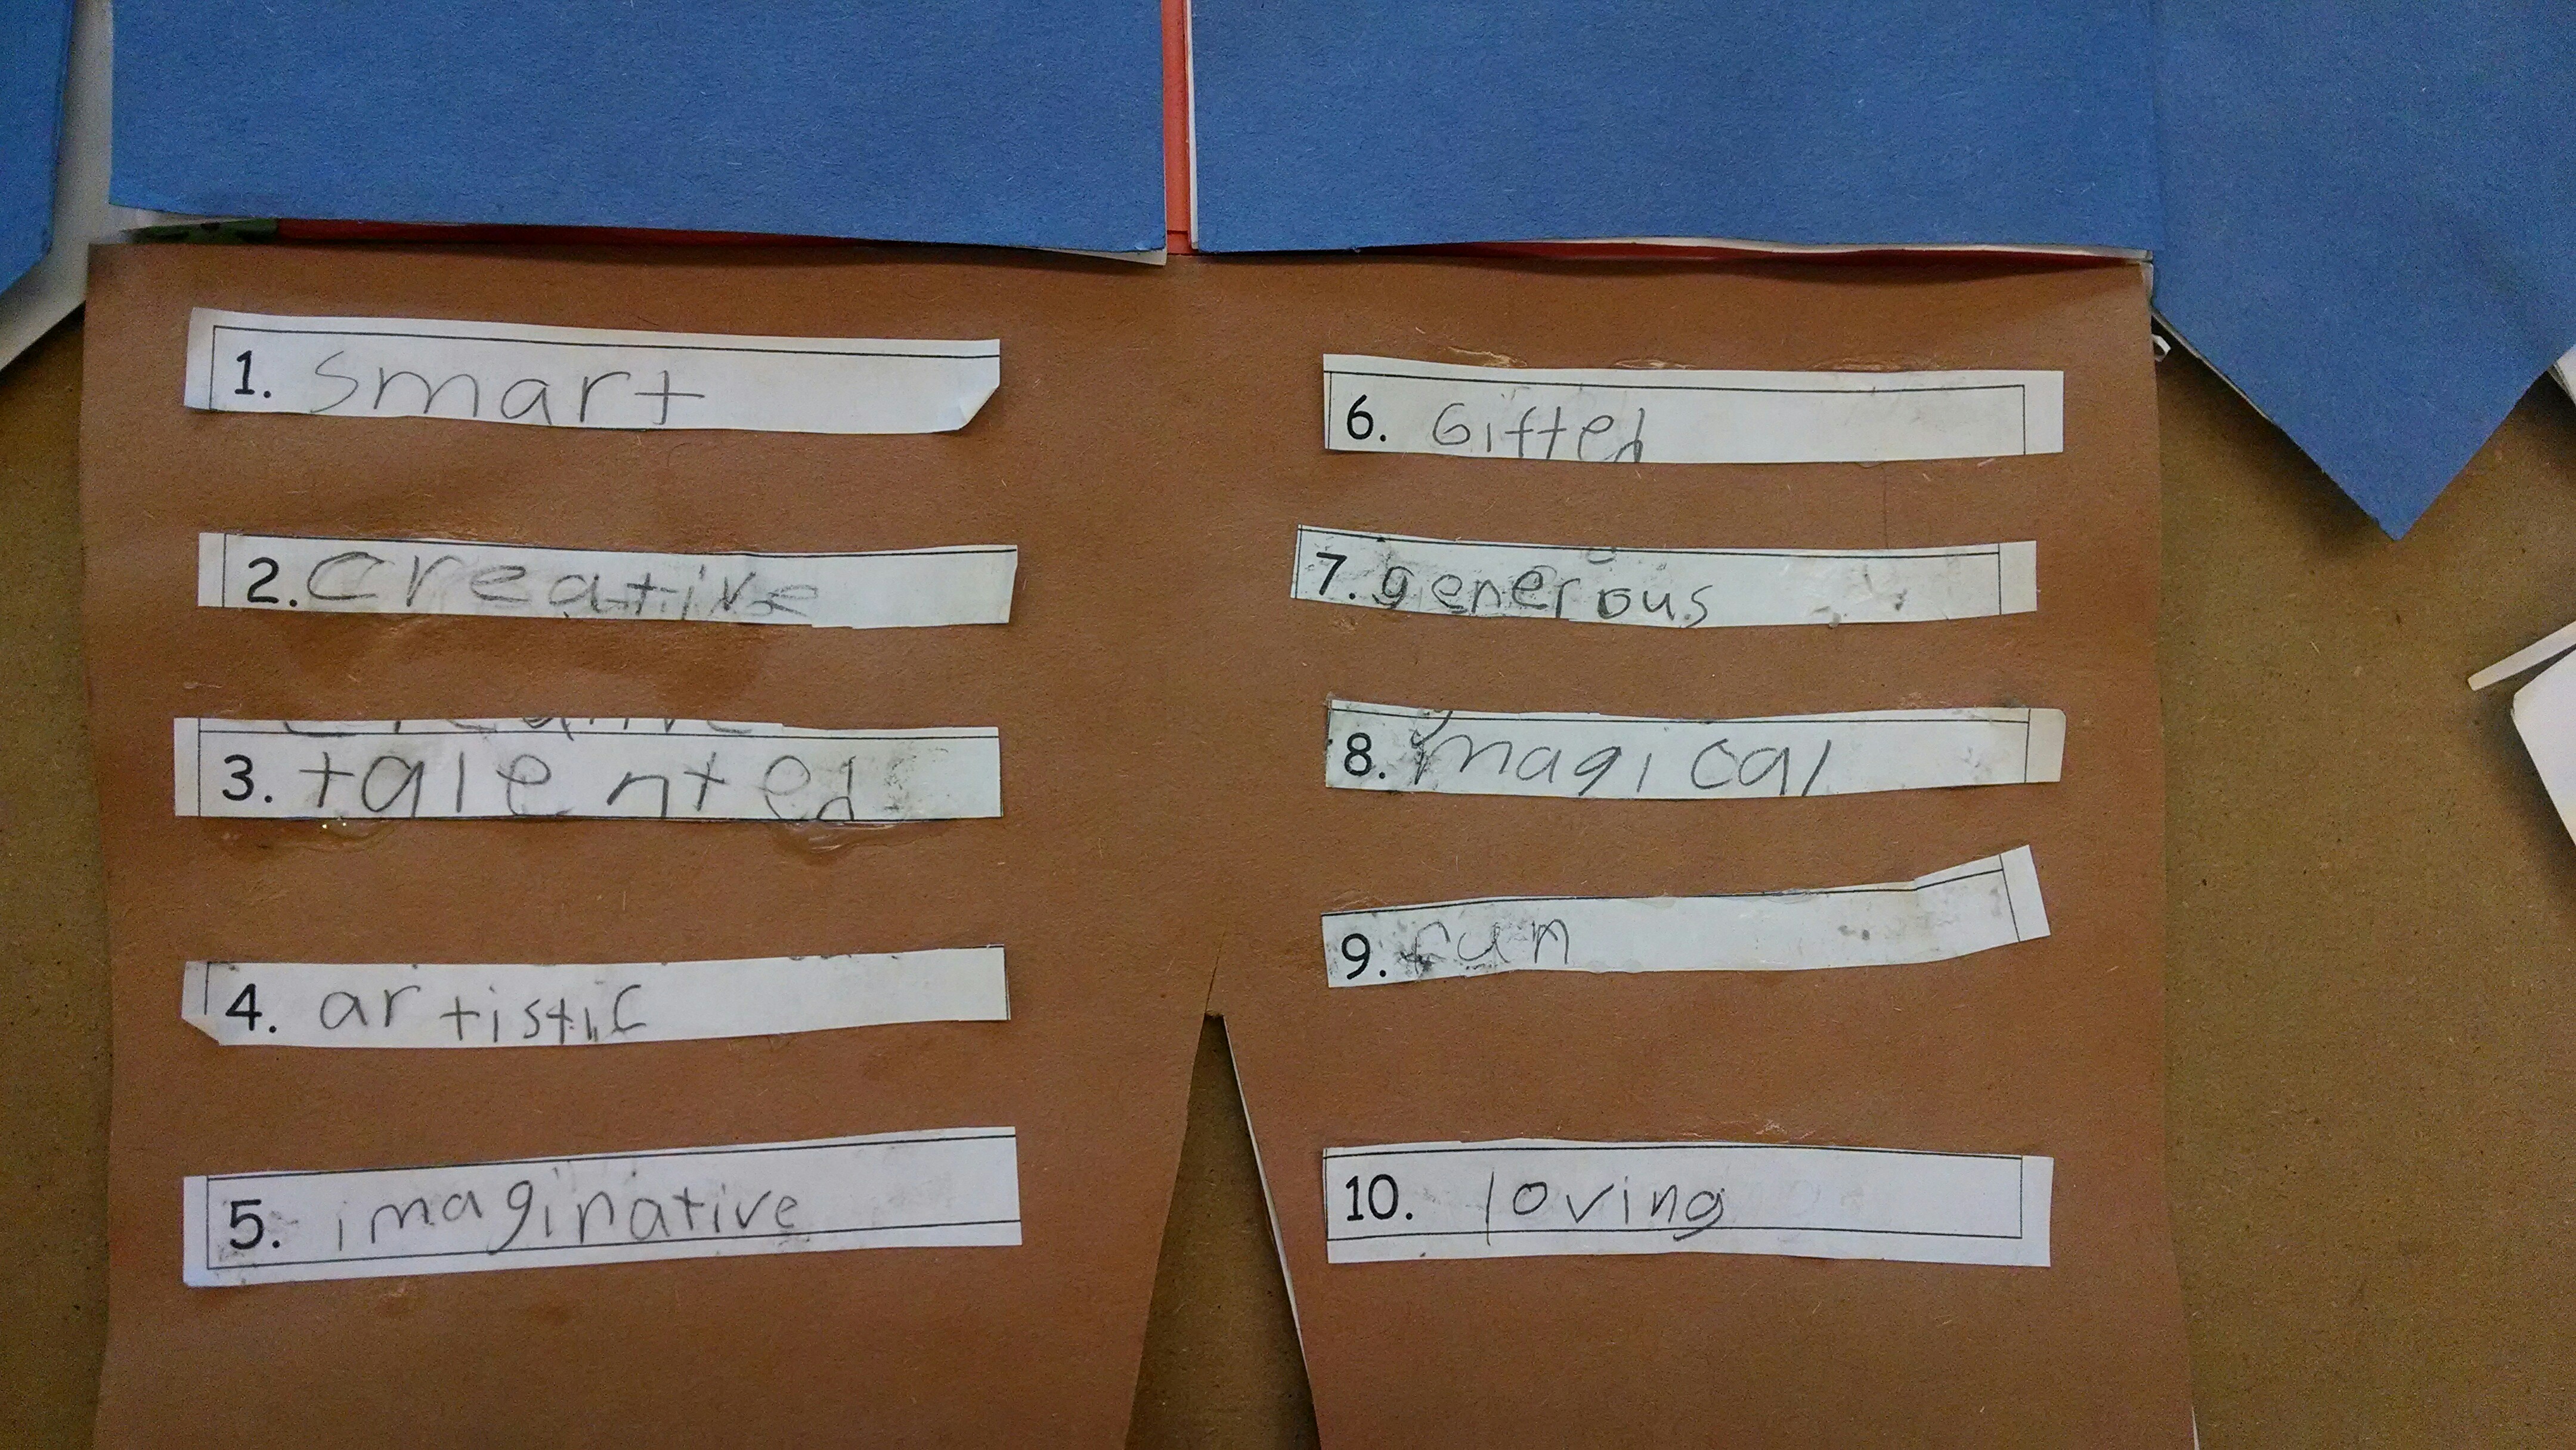 1. smart
2. creative
3. talented
4. artistic
5. imaginative
6. Gifted
7. generous
8. magical
9. fun
10. loving